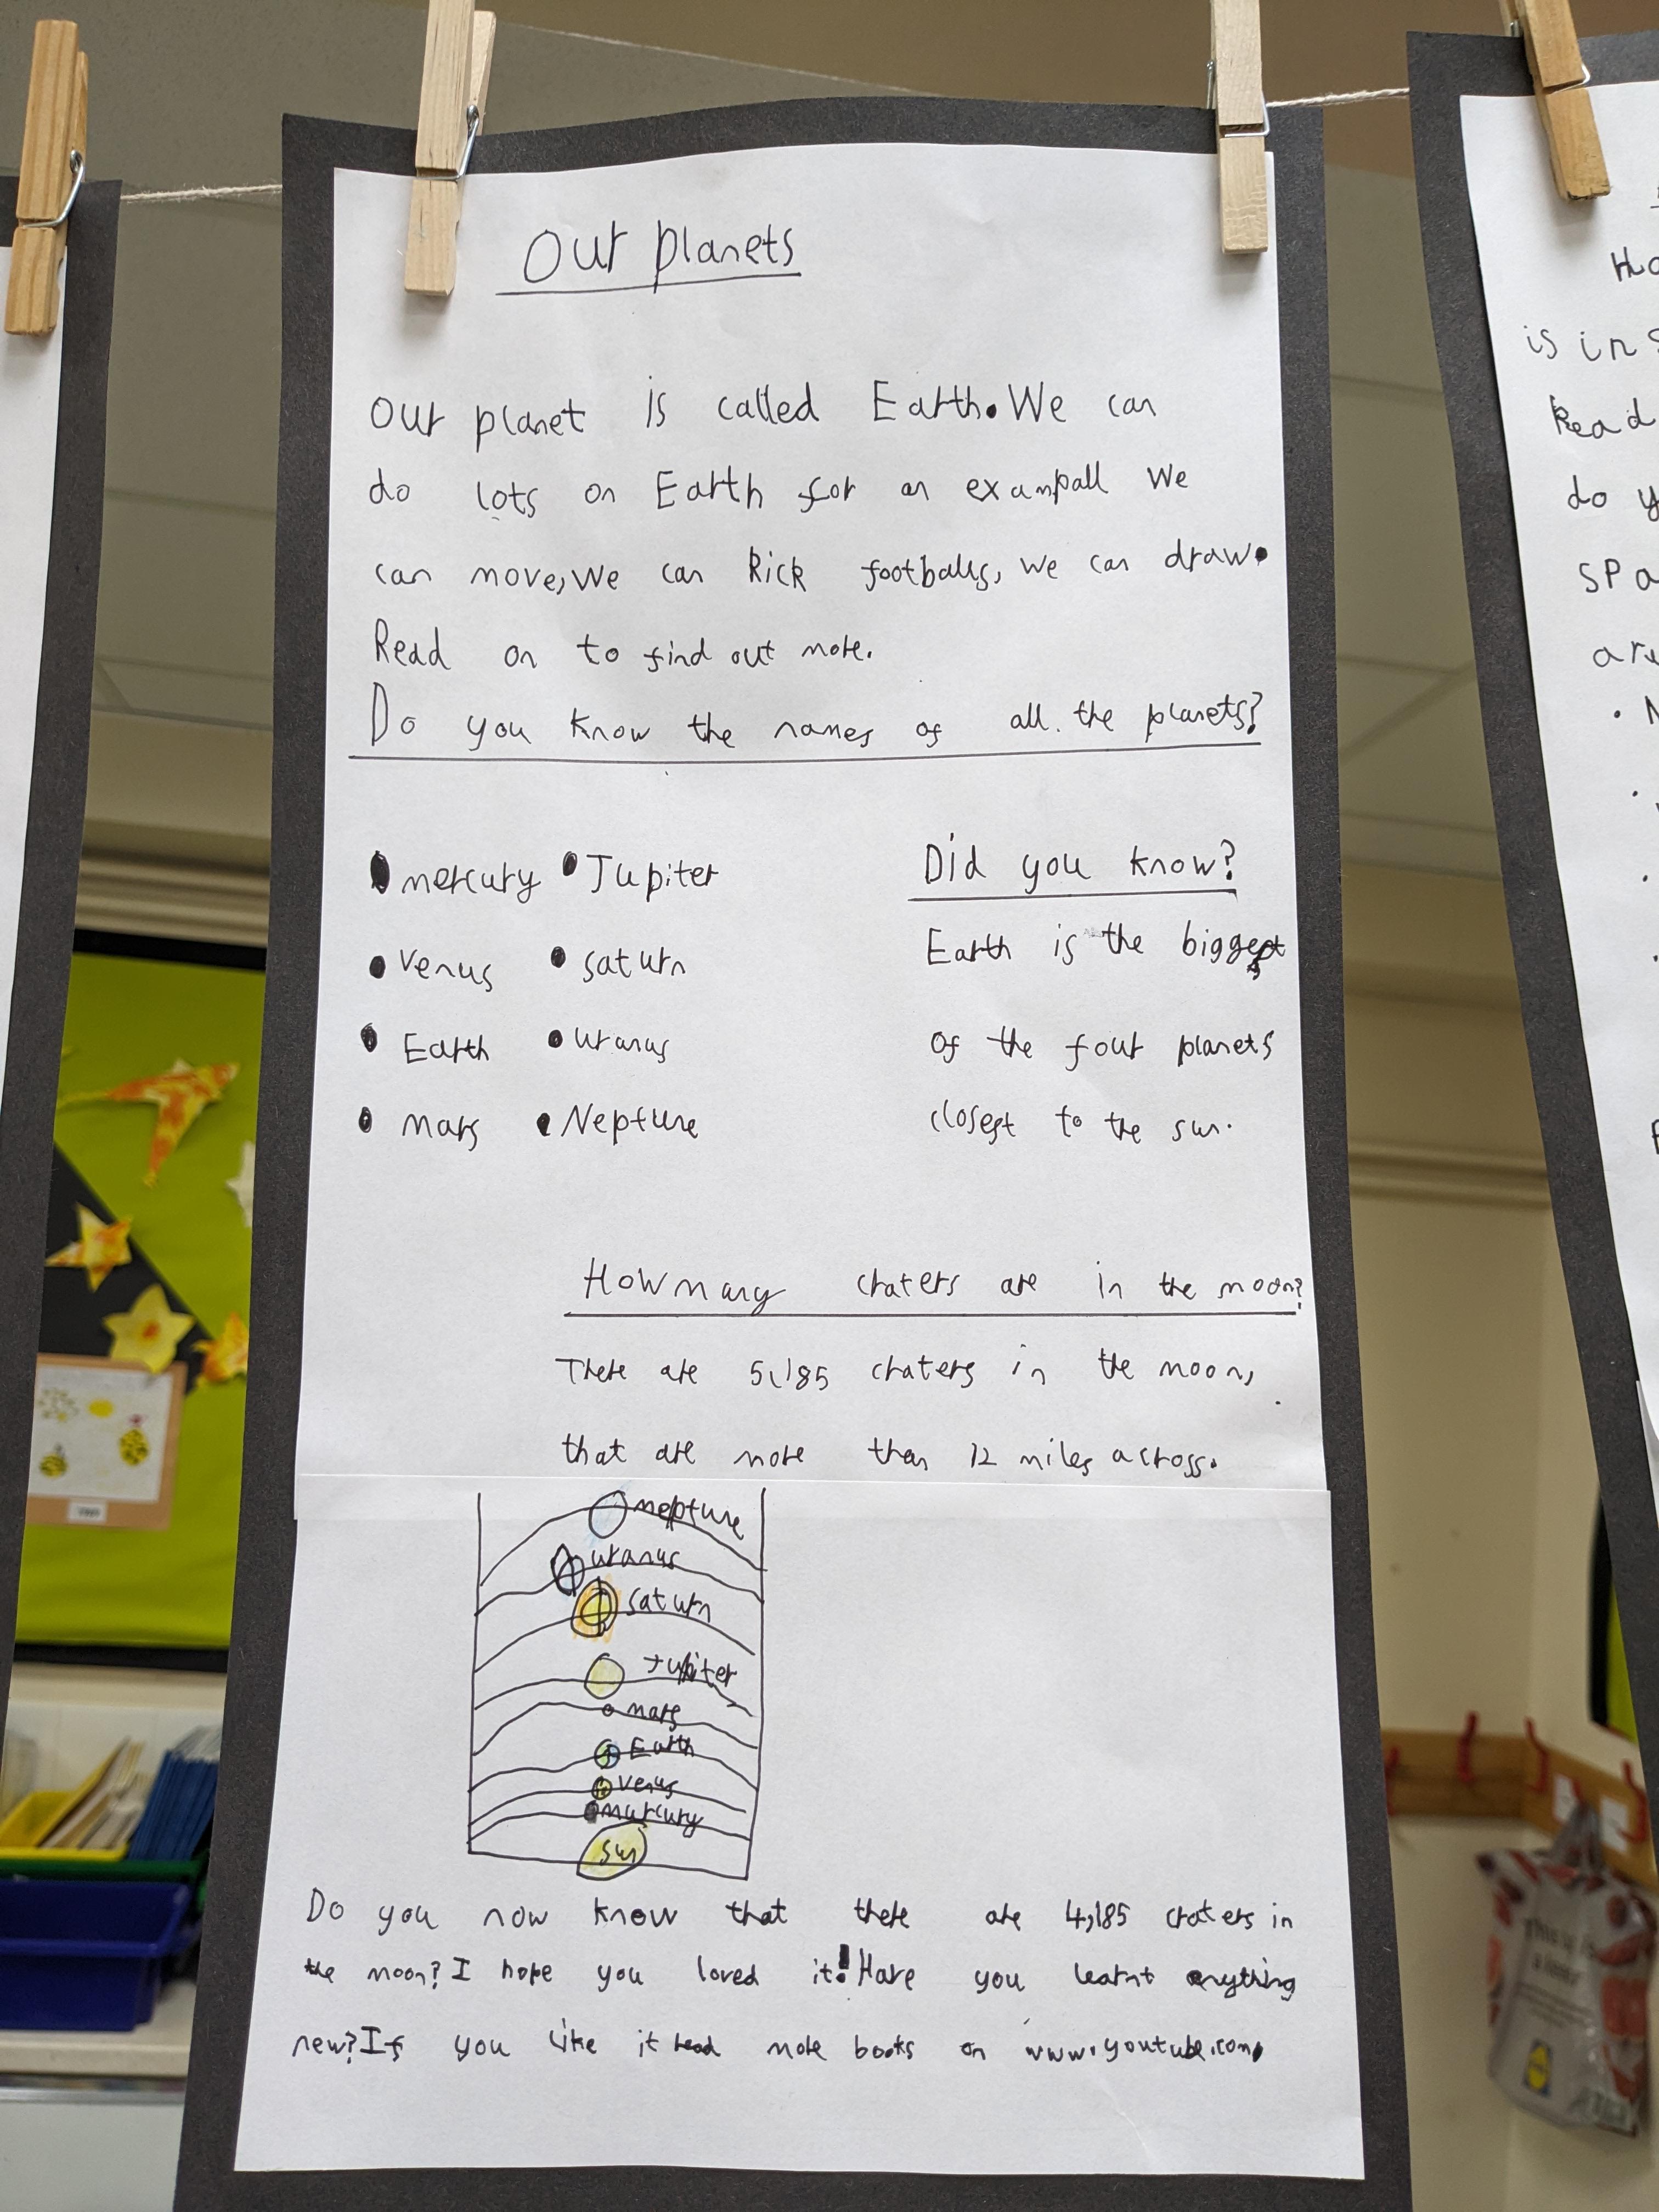 Our planets
Our planet is called Earth. We can
do lots on Earth for an exampall we
can move, We can kick footballs, we can draw.
Read on to find out more.
Do you know the names of all the planets?
mercury
Venus
Earth
mars
Jupiter
saturn
uranus
Neptune
Did you know?
Earth is the biggest
of the four planets
closest to the sun.
How many craters are in the moon?
There are 5,185 craters in the moon,
that are more than 12 miles across.
neptune
uranus
saturn
Jupiter
mars
Earth
venus
murcury
sun
Do you now know that there are 4,185 craters in
the moon? I hope you loved it! Have you learnt anything
new? If you like it read more books on www.youtube.com,
Ho
is in s
Read
do y
spa
are